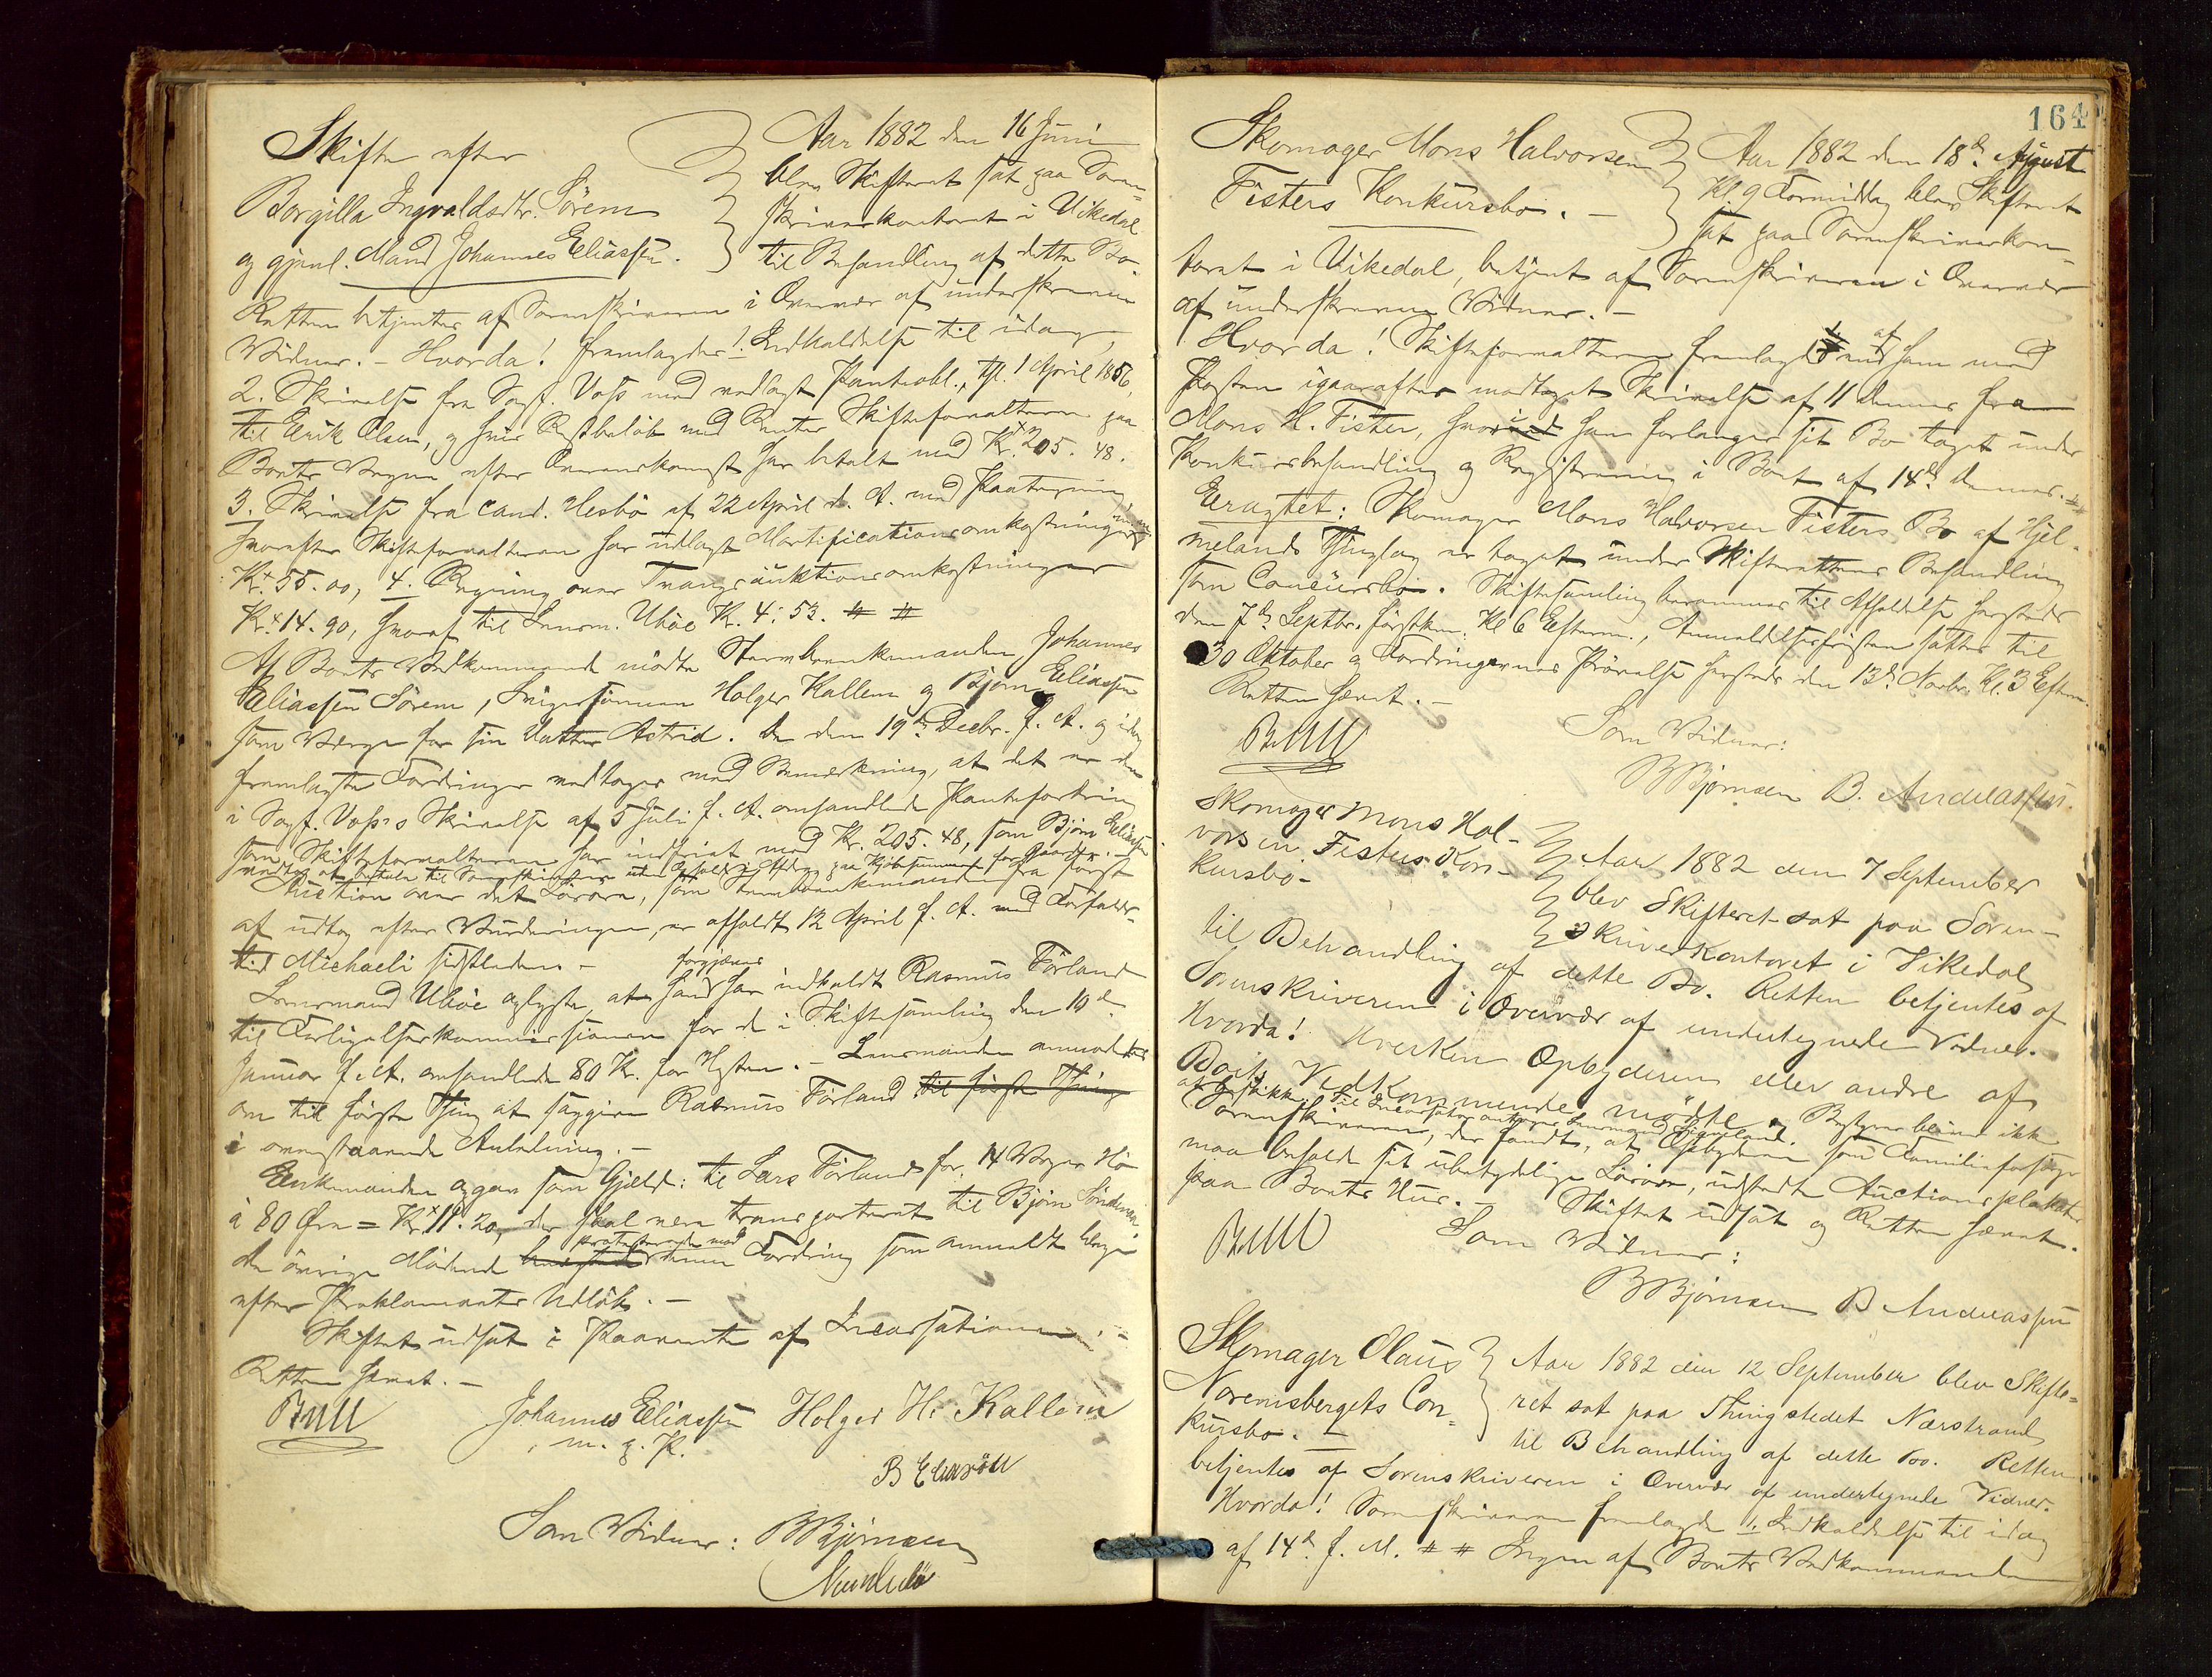 Skifte efter
Borgilla Ingvaldsdtr. Sörem
og gjenl. Mand Johannes Eliassen.
Aar 1882 den 16 Juni
blev Skifteret sat paa Soren-
skriverkontoret i Vikedal
til Behandling af dette Bo.
Retten betjentes af Sorenskriveren i Overvær af underskrevne
Vidner. - Hvorda! fremlagdes 1. Indkaldelse til idag,
2. Skrivelse fra Sagf. Voss med vedlagt Panteobl., 1 April 1856,
til Eirik Olsen, og hvis Restbeløb med Renter Skifteforvalteren paa
Boets Vegne efter Overenskomst har betalt med Kr. 205. 48.
3. Skrivelse fra Cand. Hesbö af 22 April d. A. med Paategning,
hvorefter Skifteforvalteren har udlagt Mortificationsomkostninger
Kr. 55.00, 4. Regning over Tvangsauktionsomkostninger
Kr. 14.90, hvoraf til Lensm. Ubøe Kr. 4: 53. # #
Af Boets Vedkommende mödte Stervboenkemanden Johannes
Eliassen Sörem, Svigersönnen Holger Kallem og Björn Eliassen
som Værge for sin Datter Astrid. De den 19de Decbr. f. A. og idag
fremlagte Fordringer vedtoges med Bemærkning, at det er den
i Sagf. Voss's Skrivelse af 5 Juli f. A. omhandlede Pantefordring
som Skifteforvalteren har indfriet med Kr. 205. 48, som Björn Eliassen
vedtog at betale til Sorenskriveren uden Ophold i Afdrag paa Kjøbesummen for Gaarden. -
Auction over det Løsøre, som Stervboenkemanden fra först
af udtog efter Vurderingen, er afholdt 12 April f. A. med Forfalds-
tid Michaeli sidstleden. -
Lensmand Ubøe oplyste, at han forgjæves har indkaldt Rasmus Förland
til Forligelseskommissionen for de i Skiftesamling den 10de
Januar f. A. omhandlede 80 Kr. for Hesten. - Lensmanden anmodedes
om til første Thing at sagsgive Rasmus Förland til første Thing
i ovenstaaende Anledning. -
Enkemanden opgav som Gjæld: til Lars Förland for 14 Voger Hö
à 80 Øre = Kr. 11. 20, der skal være transporteret til Björn
de övrige Mödende protesterede mod denne Fordring som anmeldt længe
efter Proklamaets Udløb. -
Skiftet udsat i Paavente af Incassationen. -
Retten hævet. -
Bull
Johannes Eliassen
m. p. P.
Holger H. Kallem
B Eliassön
Som Vidner: BBjörnsen
164
Skomager Mons Halvorsen
Fisters Konkursbo. -
Aar 1882 den 18de August
Kl. 9 Formiddag blev Skifteret
sat paa Sorenskriverkon-
toret i Vikedal, betjent af Sorenskriveren i Overvær
af underskrevne Vidner. -
Hvorda! Skifteforvalteren fremlagde 1. en af ham med
Posten igaaraftes modtaget Skrivelse af 11 dennes fra
Mons H. Fister, hvori han forlanger sit Bo taget under
Konkursbehandling og Registrering i Boet af 14de dennes. #
Eragtet: Skomager Mons Halvorsen Fisters Bo af Hjel-
melands Thinglag er taget under Skifterettens Behandling
som Concursbo. Skiftesamling berammes til Afholdelse hersteds
den 7de Septbr. førstkm. Kl 6 Efterm., Anmeldelsesfristen sættes til
30 Oktober og Fordringernes Prövelse hersteds den 13de Novbr. Kl. 3 Efterm.
Retten hævet. -
Bull
Som Vidner:
BBjörnsen B. Andreassen.
Skomager Mons Hal-
vorsen Fisters Kon-
kursbo-
Aar 1882 den 7 September
blev Skifteret sat paa Soren-
skriverkontoret i Vikedal
til Behandling af dette Bo. Retten betjentes af
Sorenskriveren i Overvær af undertegnede Vidner.
Hvorda! Hverken Opbyderen eller andre af
Boets Vedkommende mødte og Bestyrer blev ikke
at beskikke. Til Incassator antoges Lensmand
Sorenskriveren, der fandt, at Opbyderen som Familieforsørger
maa beholde sit ubetydelige Løsøre, udstedte Auctionsplakater
paa Boets Hus. - Skiftet udsat og Retten hævet.
Bull
Som Vidner:
BBjörnsen B Andreassen
Skomager Olaus
Noremsbergets Con-
kursbo. -
Aar 1882 den 12 September blev Skifte-
ret sat paa Thingstedet Nærstrand
til Behandling af dette Bo. Retten
betjentes af Sorenskriveren i Overvær af undertegnede Vidner.
Hvorda! Sorenskriveren fremlagde 1. Indkaldelse til idag
af 14de f. M. # # Ingen af Boets Vedkommende